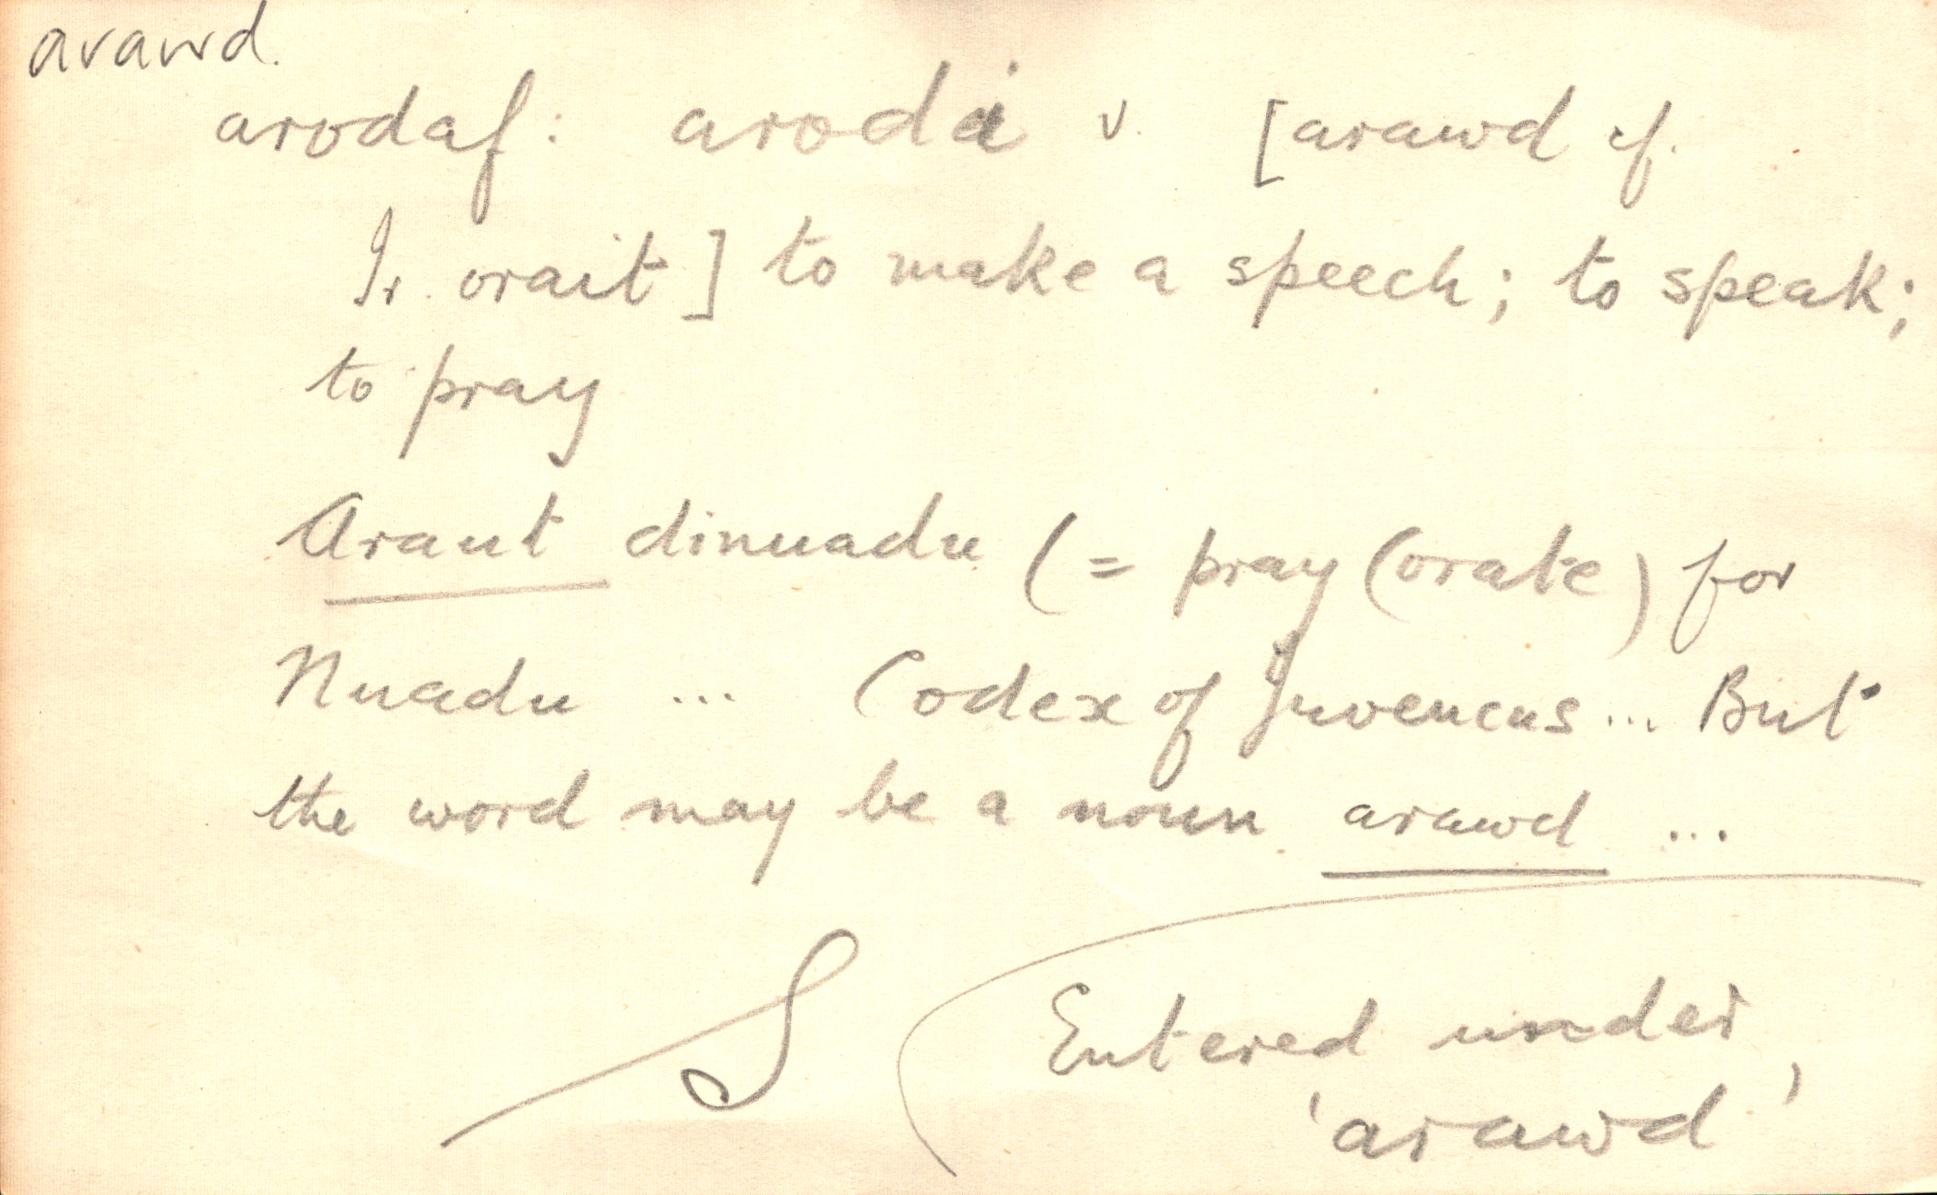 arawd.
arodaf: arodi v. [arawd cf.
Ir. orait] to make a speech; to speak;
to pray
Araut dinuadu (= pray (orate) for
Nuadu ... Codex of Juvencus ... But
the word may be a noun arawd ...
S
Entered under
'arawd'